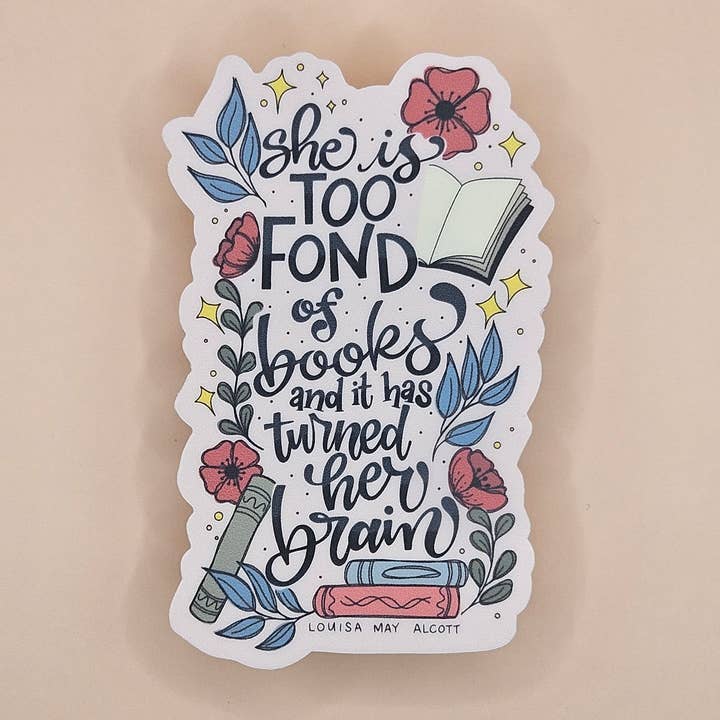 she is
TOO
FOND
of
books
and it has
turned
her
brain
LOUISA MAY ALCOTT